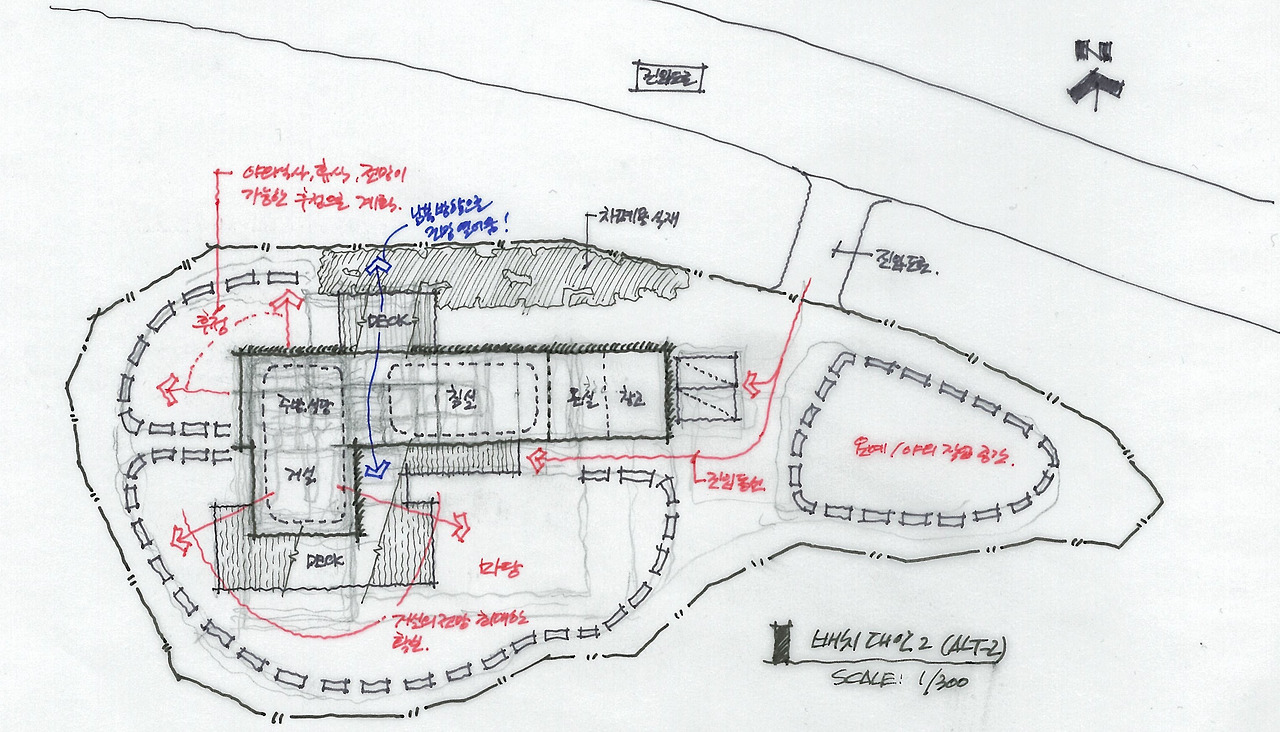 N
진입도로
야외식사, 휴식, 전망이
가능한 후정으로 계획.
남북방향으로
전망 열어줌!
차폐용 식재
진입도로.
후정
DECK
주방.식당
침실
온실
창고
거실
원예/야외 작업 공간.
진입동선
DECK
마당
거실의 전망 최대한
확보.
배치 대안 2 (ALT-2)
SCALE: 1/300